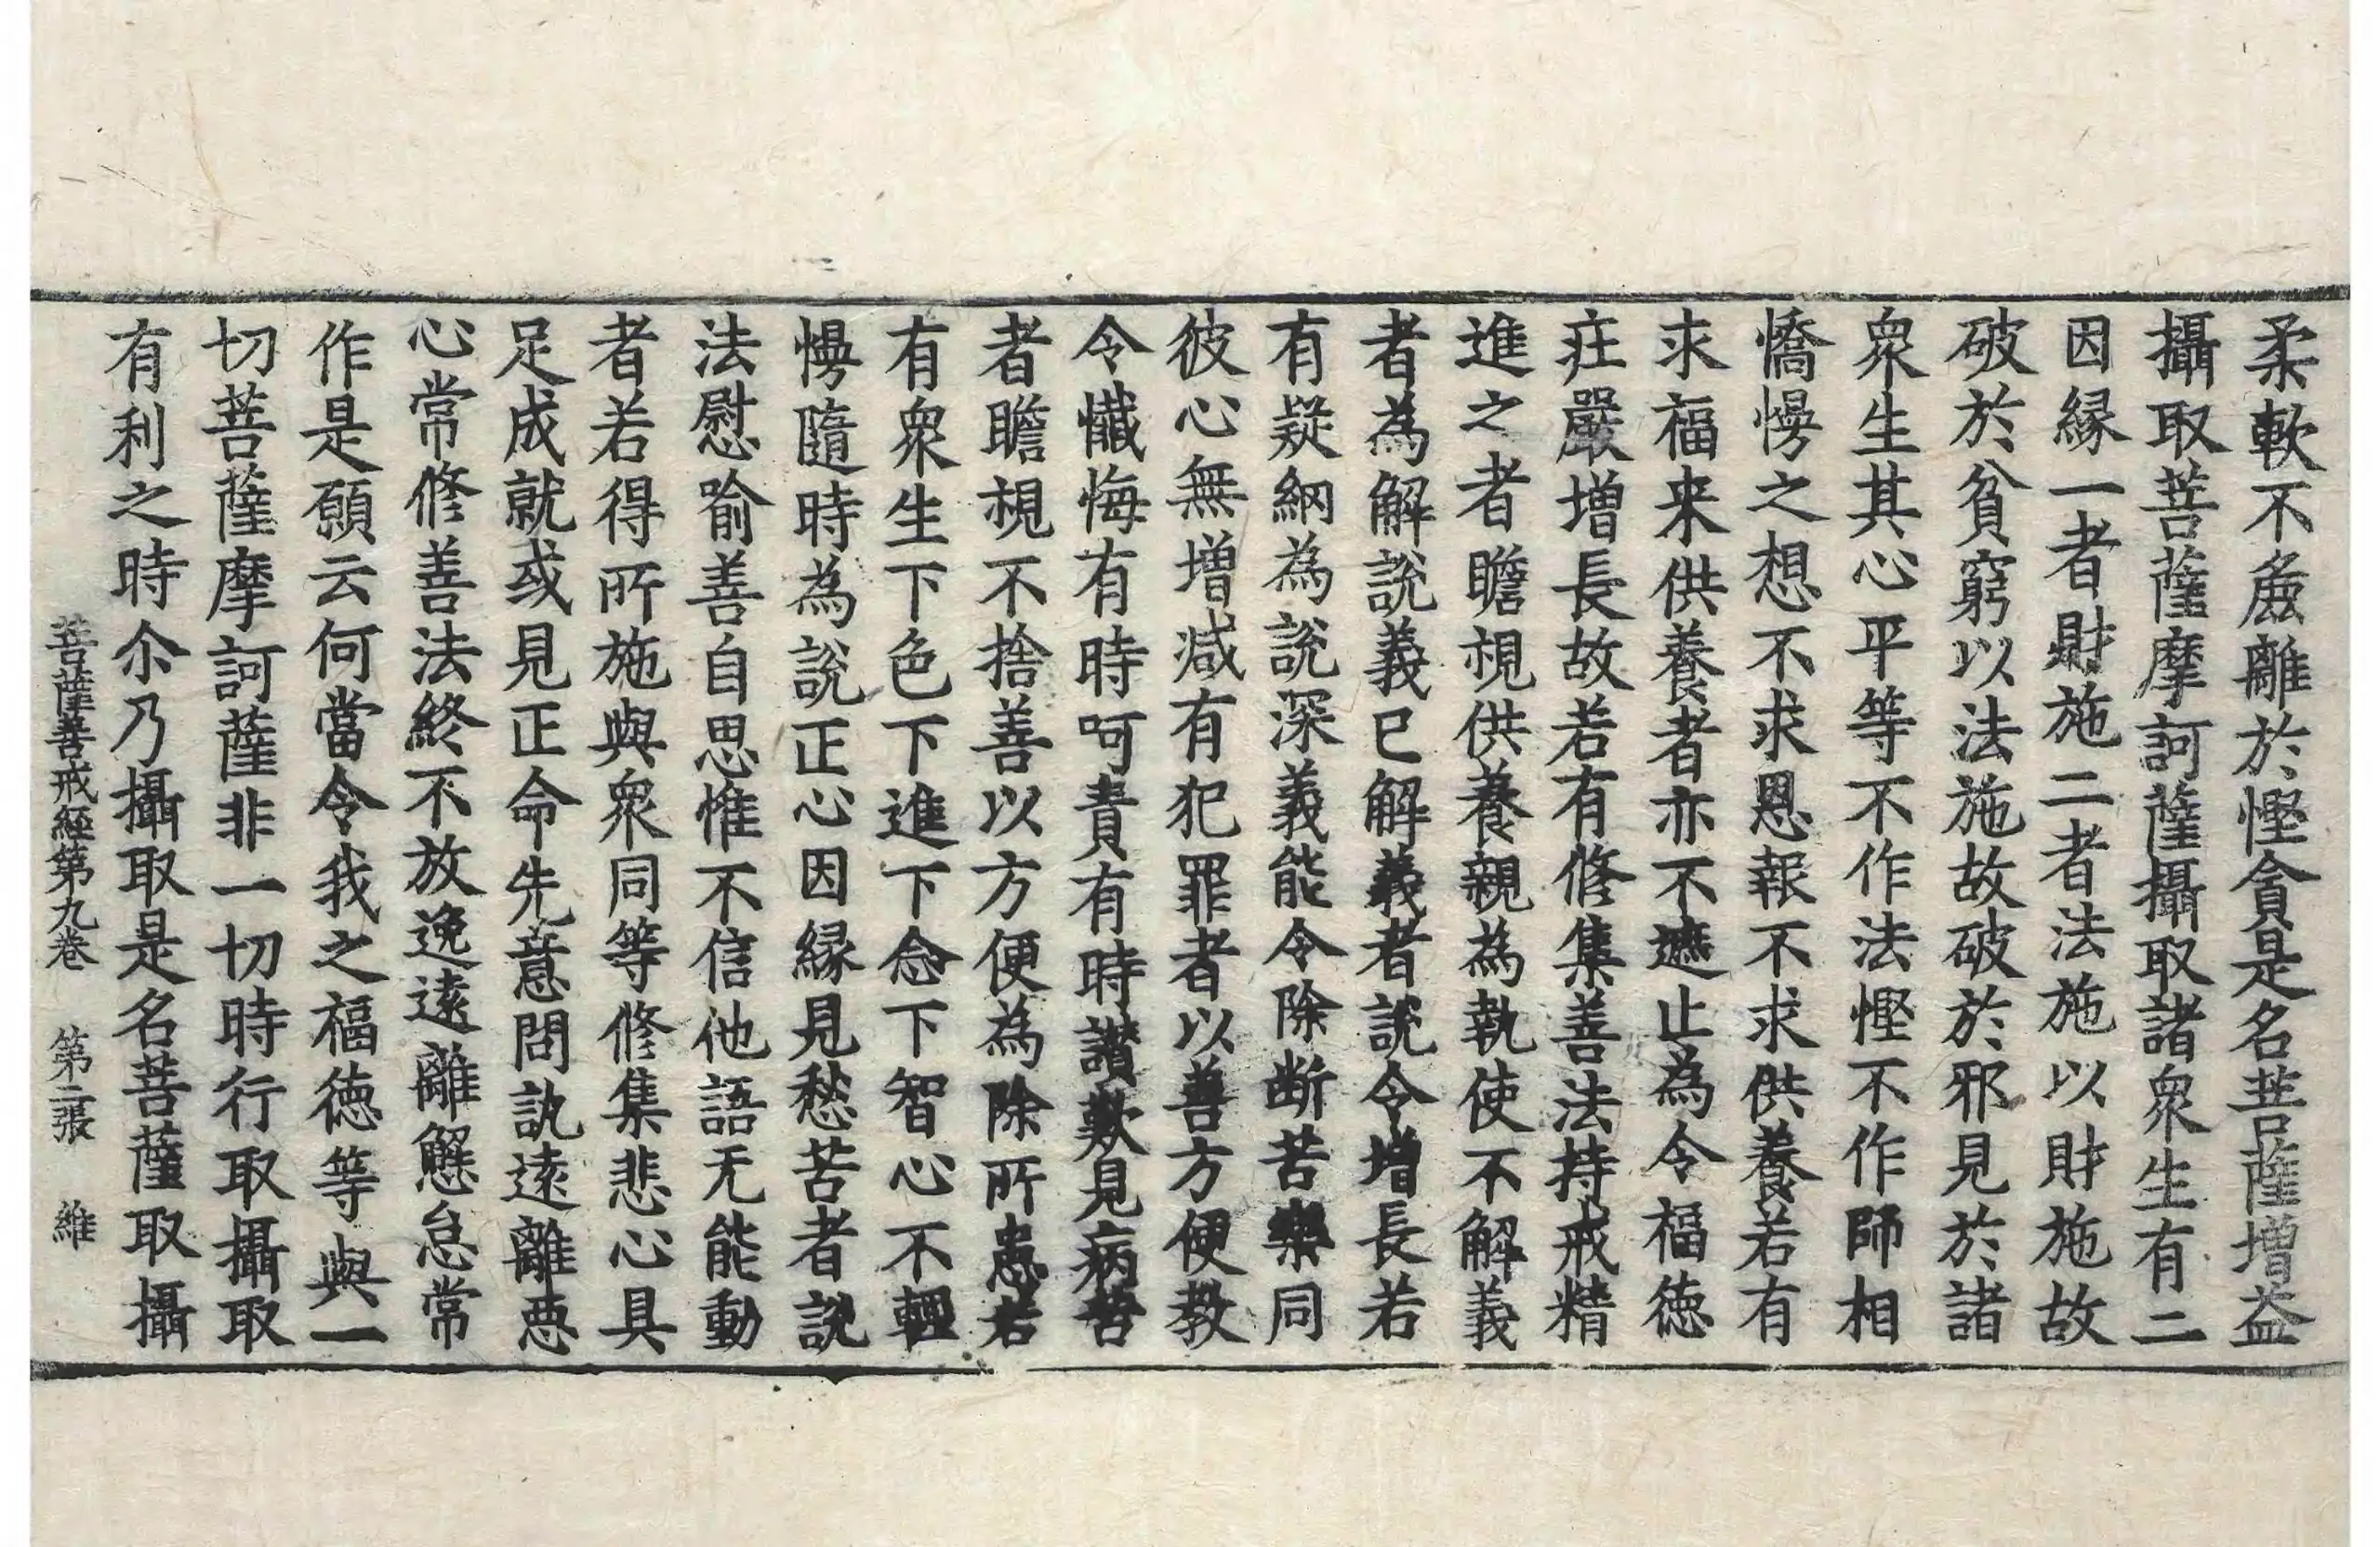 柔軟不麁離於慳貪是名菩薩增益
攝取菩薩摩訶薩攝取諸衆生有二
因縁一者財施二者法施以財施故
破於貧窮以法施故破於邪見於諸
衆生其心平等不作法慳不作師相
憍慢之想不求恩報不求供養若有
求福来供養者亦不遮止為令福徳
疘嚴增長故若有修集善法持戒精
進之者瞻視供養親為執使不解義
者為解說義已解義者說令增長若
有疑網為說深義能令除断苦樂同
彼心無增减有犯罪者以善方便教
令懺悔有時呵責有時讃歎見病苦
者瞻視不捨善以方便為除所患若
有衆生下色下進下念下智心不輕
慢隨時為說正心因縁見愁苦者說
法慰喻善自思惟不信他語无能動
者若得所施與衆同等修集悲心具
足成就或見正命先意問訊遠離悪
心常修善法終不放逸遠離懈怠常
作是願云何當令我之福徳等與一
切菩薩摩訶薩非一切時行取攝取
有利之時尒乃攝取是名菩薩取攝
菩薩善戒經第九卷　第二張　維